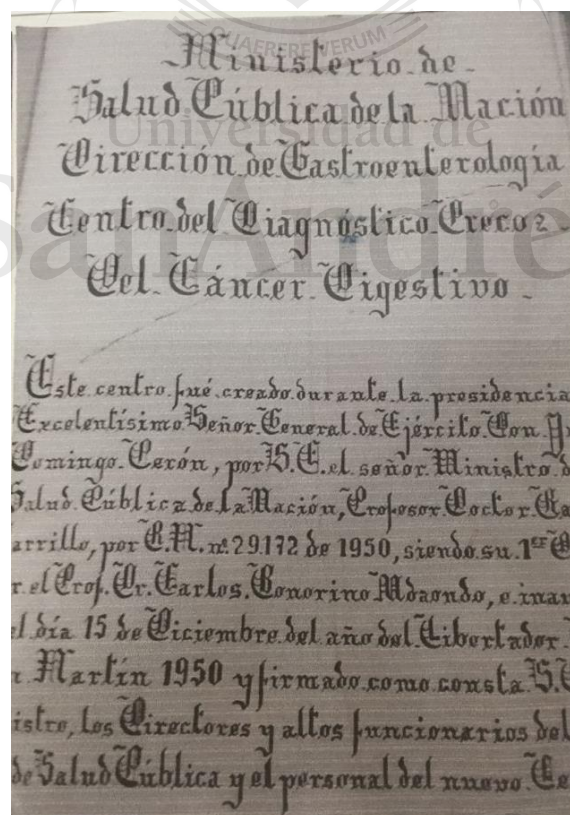 QUAERERE VERUM
Universidad de
SanAndrés
Ministerio de
Salud Pública de la Nación
Dirección de Gastroenterología
Centro del Diagnóstico Precoz
Del Cáncer Digestivo
Este centro fué creado durante la presidencia
Excelentísimo Señor General de Ejército Don
Domingo Perón, por S.E. el señor Ministro d
Salud Pública de la Nación, Profesor Doctor Ra
arrillo, por D.M. nº 29.172 de 1950, siendo su 1er D
r el Prof. Dr. Carlos Bonorino Udaondo, e inau
l día 15 de Diciembre del año del Libertador
n Martín 1950 y firmado como consta S.E
istro, los Directores y altos funcionarios del
de Salud Pública y el personal del nuevo Ce